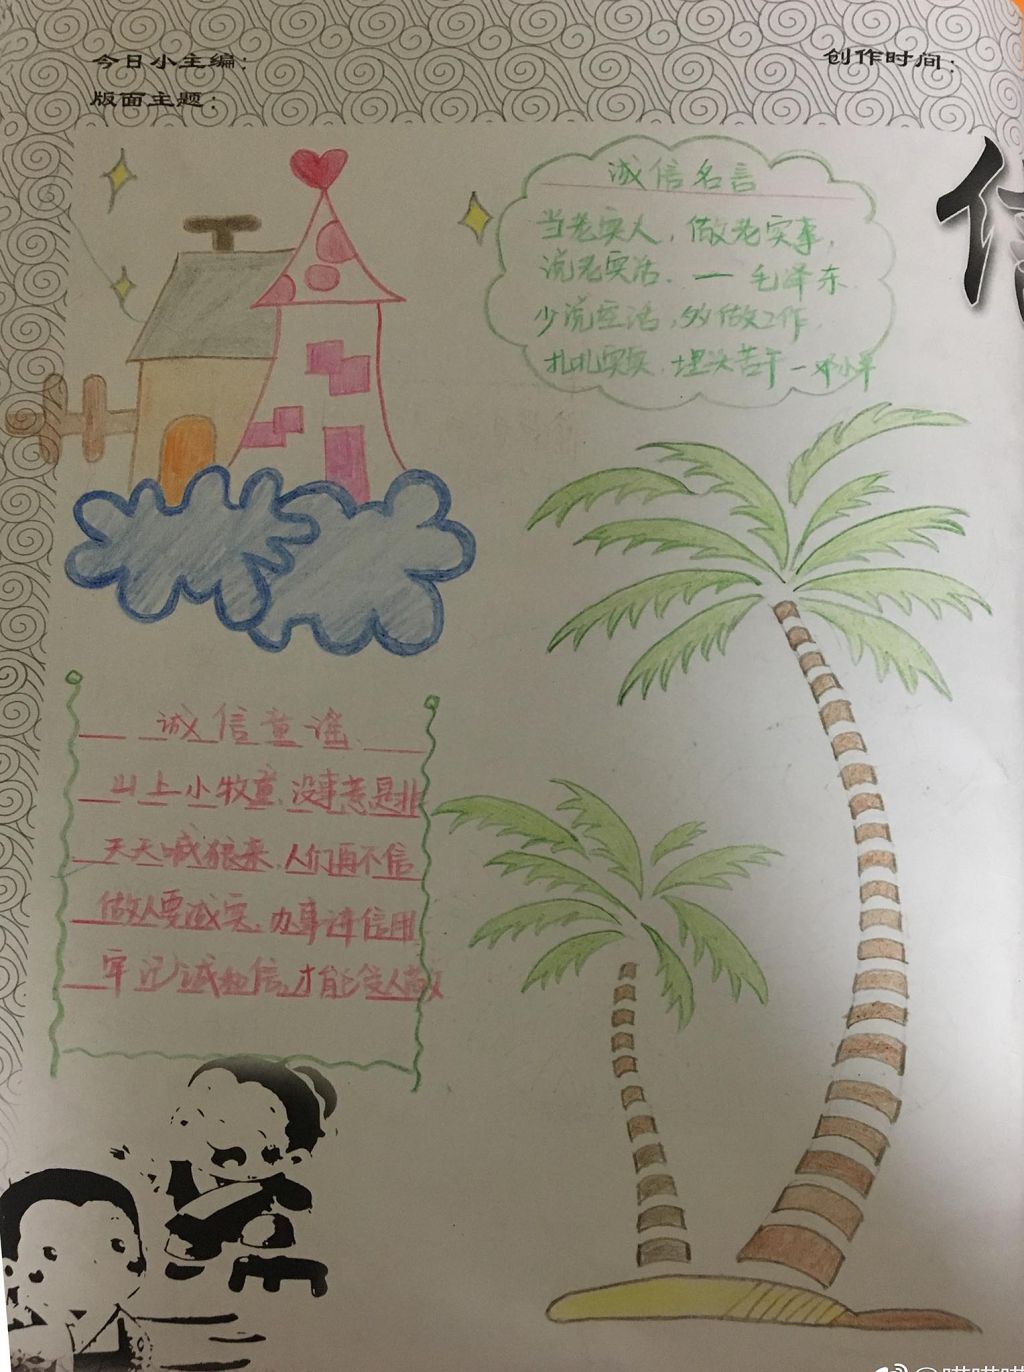 今日小主编：
创作时间：
版面主题：
诚信名言
当老实人，做老实事，
说老实话．— 毛泽东
少说空话，多做工作，
扎扎实实．埋头苦干—邓小平
诚信童谣
山上小牧童，没事惹是非
天天喊狼来，人们再不信
做人要诚实，办事讲信用
牢记诚和信，才能受人敬
@喵喵喵